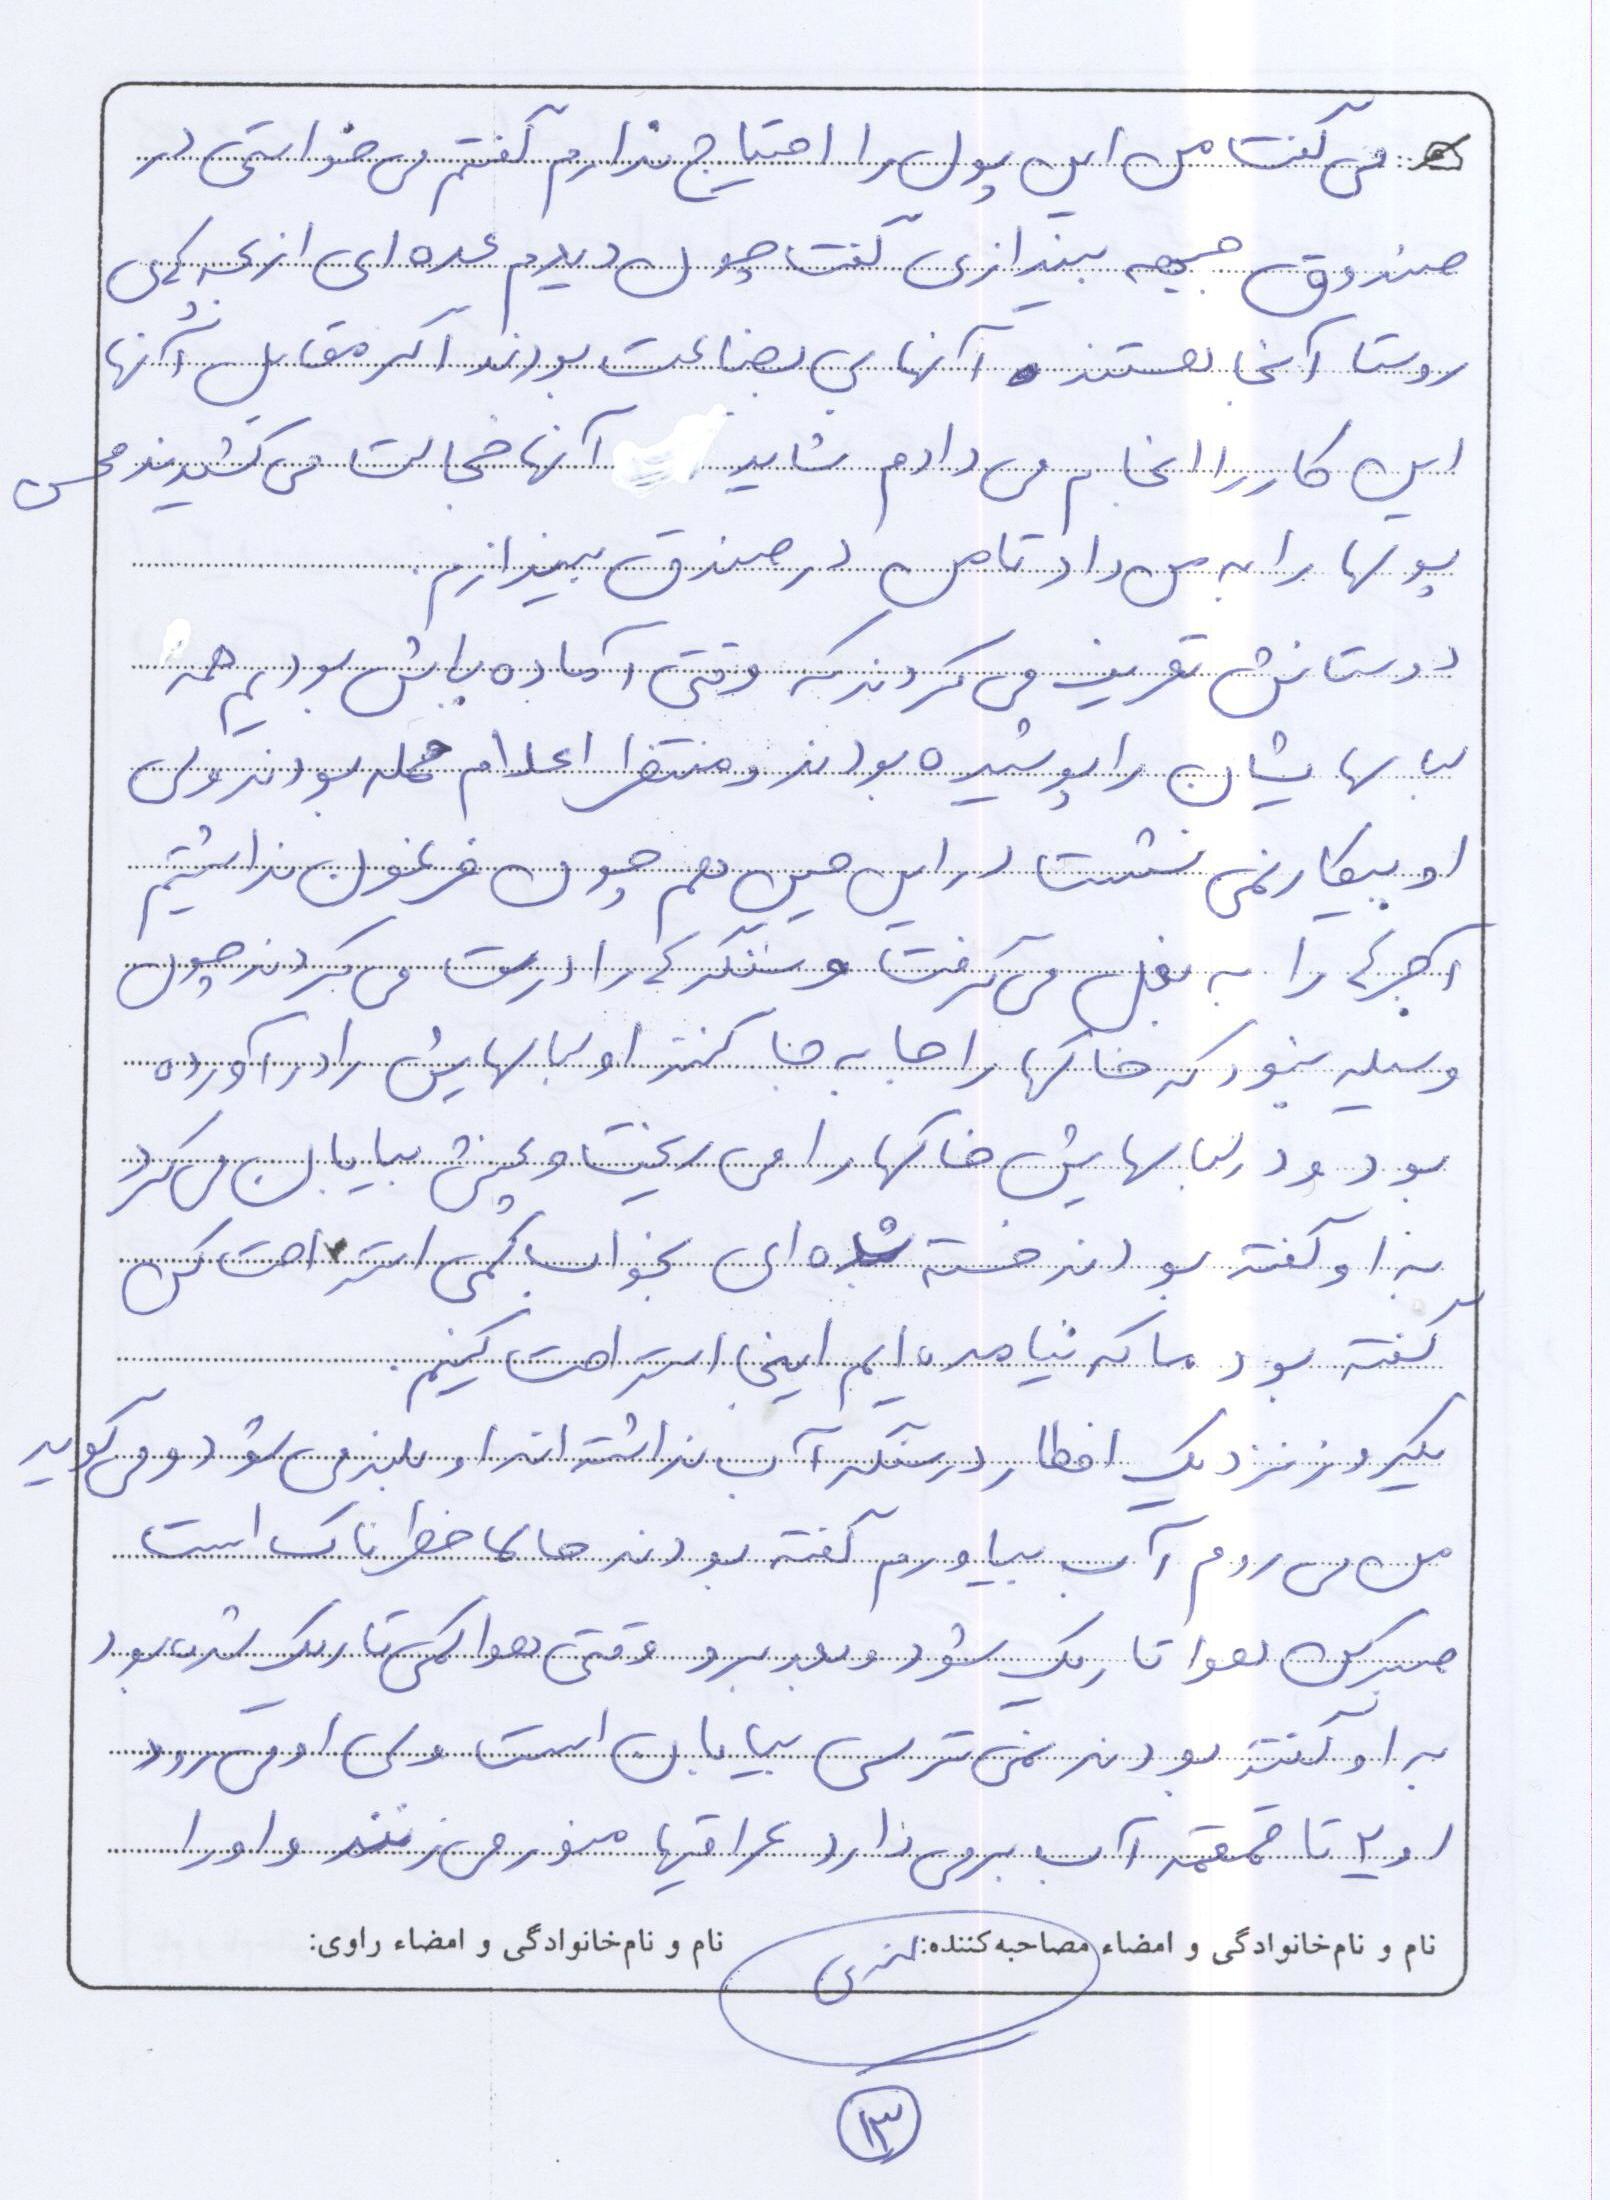 می گفت من این پول را احتیاج ندارم گفتم می خواستی در
صندوق جبهه بیندازی گفت چون دیدم عده ای از بچه های
روستا آنجا هستند و آنها بی بضاعت بودند اگر مقابل آنها
این کار را انجام می دادم شاید آنها خجالت می کشیدند محسن
پولها را به من داد تا من در صندق بیندازم.
دوستانش تعریف می کردند که وقتی آماده باش بودیم همه
لباسهایشان را پوشیده بودند و منتظر اعلام حمله بودند ولی
او بیکار نمی نشست در این حین هم چون فرغون نداشتیم
آجرها را به بغل می گرفت و سنگرها را درست می کردند چون
وسیله نبود که خاکها را جا به جا کنند او لباسهایش را در آورده
بود و در لباسهایش خاکها را می ریخت و پخش بیابان می کرد
به او گفته بودند خسته شده ای بخواب کمی استراحت کن
گفته بود ما که نیامده ایم اینجا استراحت کنیم.
یکروز نزدیک افطار در سنگر آب نداشته اند او بلند می شود و می گوید
من می روم آب بیاورم گفته بودند حالا خطرناک است
صبر کن هوا تاریک شود و بعد برو وقتی هوا کمی تاریک شده بود
به او گفته بودند نمی ترسی بیابان است ولی او می رود
او ۲ تا قمقمه آب بر می دارد عراقیها منور می زنند و او را
نام و نام‌خانوادگی و امضاء مصاحبه‌کننده:
نام و نام‌خانوادگی و امضاء راوی:
۱۳